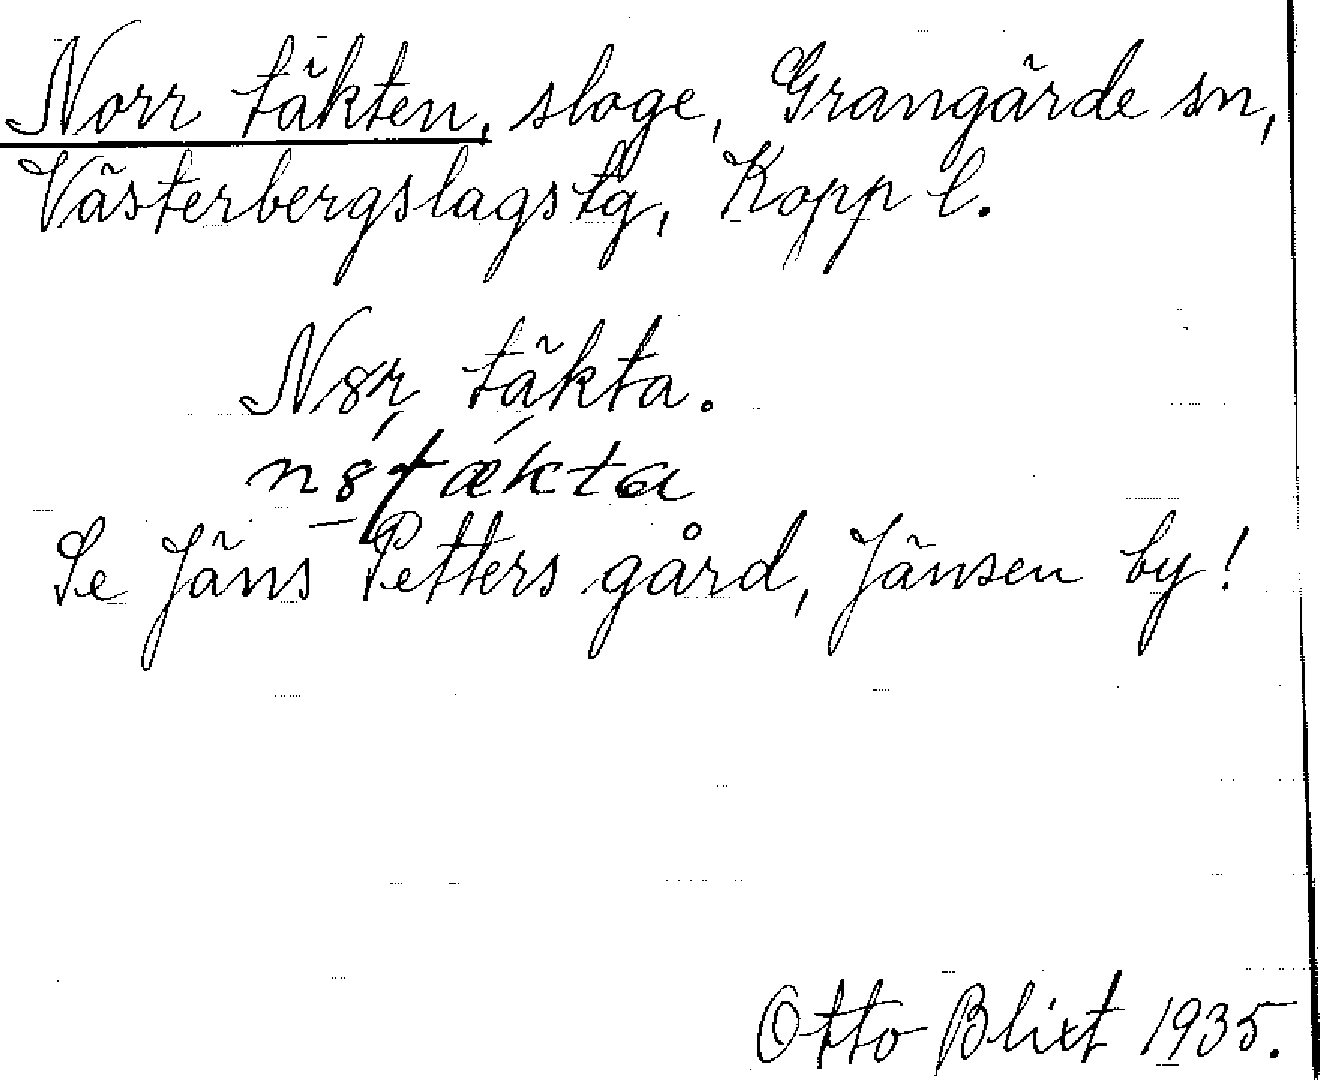 Norr täkten, sloge, Grangärde sn,
Västerbergslags tg, Kopp l.
täkta.
Se Jäns Petters gård, Jänsen by!
Otto Blixt 1935.